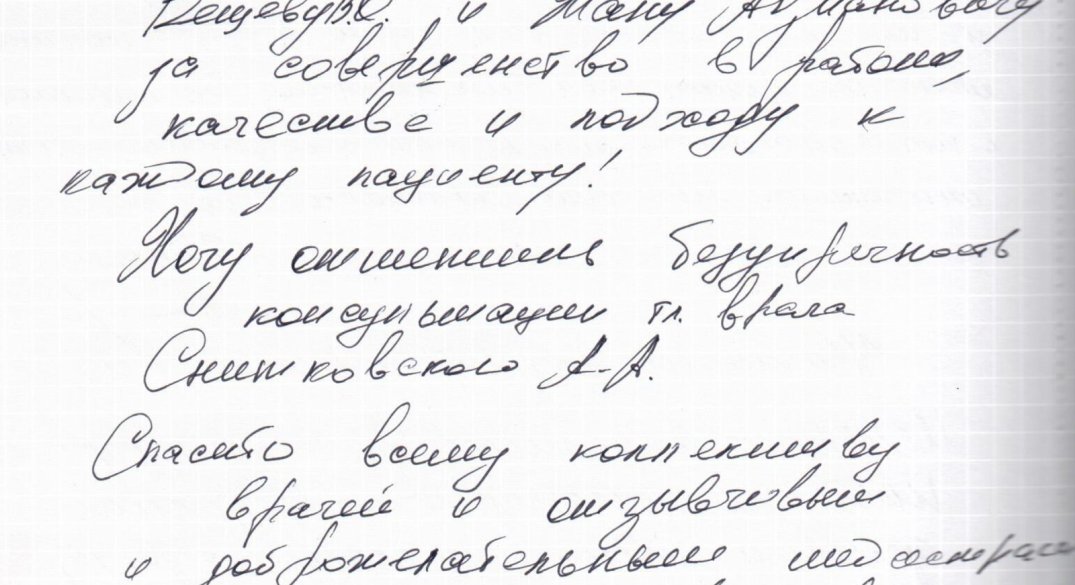 и
за совершенство в работе,
качестве и подходу к
каждому пациенту!
Хочу отметить безупречность
консультации гл. врача
Снитковского А.А.
Спасибо всему коллективу
врачей и отзывчивым
и доброжелательным медсестрам